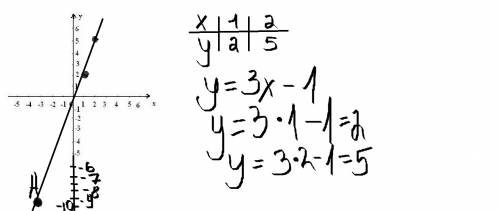 y
5
4
3
2
1
-5 -4 -3 -2 -1 1 2 3 4 5 6 x
-1
-2
-3
-4
-5
-6
-7
-8
-9
-10
A
x 1 2
y 2 5
y=3x-1
y=3·1-1=2
y=3·2-1=5